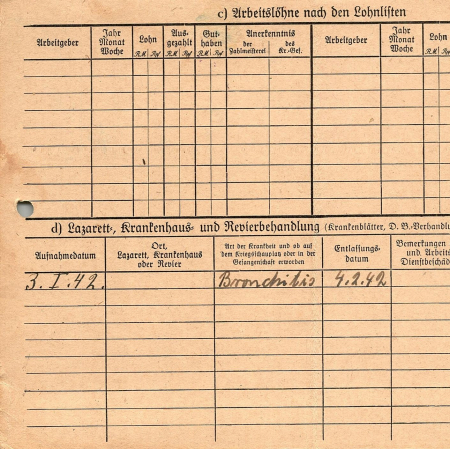 c) Arbeitslöhne nach den Lohnlisten
Arbeitgeber Jahr Monat Woche Lohn R.M. Rpf Ausgezahlt R.M. Rpf Guthaben R.M. Rpf Anerkenntnis der Zahlmeisterei des Kr.-Gef. Arbeitgeber Jahr Monat Woche Lohn R.M. Rpf
d) Lazarett-, Krankenhaus- und Revierbehandlung (Krankenblätter, D. B.-Verhandlu
Aufnahmedatum Ort, Lazarett, Krankenhaus oder Revier Art der Krankheit und ob auf dem Kriegsschauplatz oder in der Gefangenschaft erworben Entlassungsdatum Bemerkungen und Arbeits Dienstbeschäd
3. I. 42. Bronchitis 4.2.42